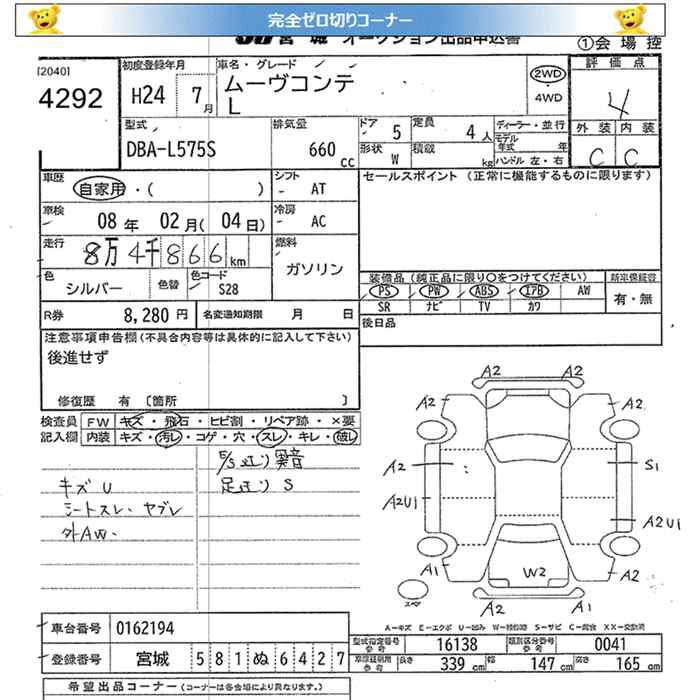 完全ゼロ切りコーナー
JU 宮城 オークション出品申込書
①会場控
[2040]
4292
初度登録年月
H24 7月
車名・グレード
ムーヴコンテ
L
2WD
・
4WD
評価点
4
外装 内装
C C
型式
DBA-L575S
排気量
660 cc
ドア 5
定員 4人
形状 W
積載 kg
ディーラー・並行
モデル年式 年
ハンドル 左・右
車歴
自家用・( )
シフト
AT
車検
08年 02月(04日)
冷房
AC
走行
8万4千866km
燃料
ガソリン
色
シルバー
色替
色コード
S28
R券 8,280円
名変通知期限 月 日
セールスポイント(正常に機能するものに限ります)
装備品(純正品に限り○をつけてください)
新車保証書
PS PW ABS エアB AW
SR ナビ TV カワ
有・無
後日品
注意事項申告欄(不具合内容等は具体的に記入して下さい)
後進せず
修復歴 有 〔箇所 〕
検査員記入欄
FW キズ・飛石・ヒビ割・リペア跡・×要
内装 キズ・汚レ・コゲ・穴・スレ・キレ・破レ
E/S 異音
キズU
S
シートスレ・ヤブレ
外AW・
A2 A2
A2 A2
A2 S1
A2U1 A2U1
A1 W2 A2
A2 A1
スペア
A-キズ E-エクボ U-凹み W-補修跡 S-サビ C-腐食 XX-交換済
車台番号 0162194
登録番号 宮城 581ぬ6427
型式指定番号参考 16138
類別区分番号参考 0041
車庫証明用参考 長さ 339cm 幅 147cm 高さ 165cm
希望出品コーナー(コーナーは各会場により異なります。)